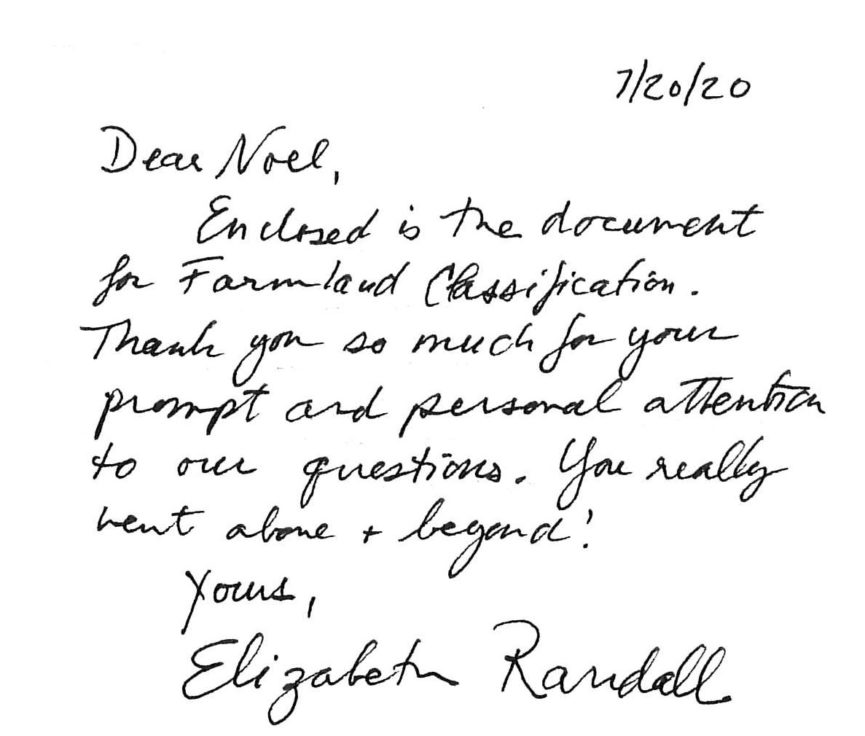 7/20/20
Dear Noel,
Enclosed is the document
for Farmland Classification.
Thank you so much for your
prompt and personal attention
to our questions. You really
went above + beyond!
Yours,
Elizabeth Randall